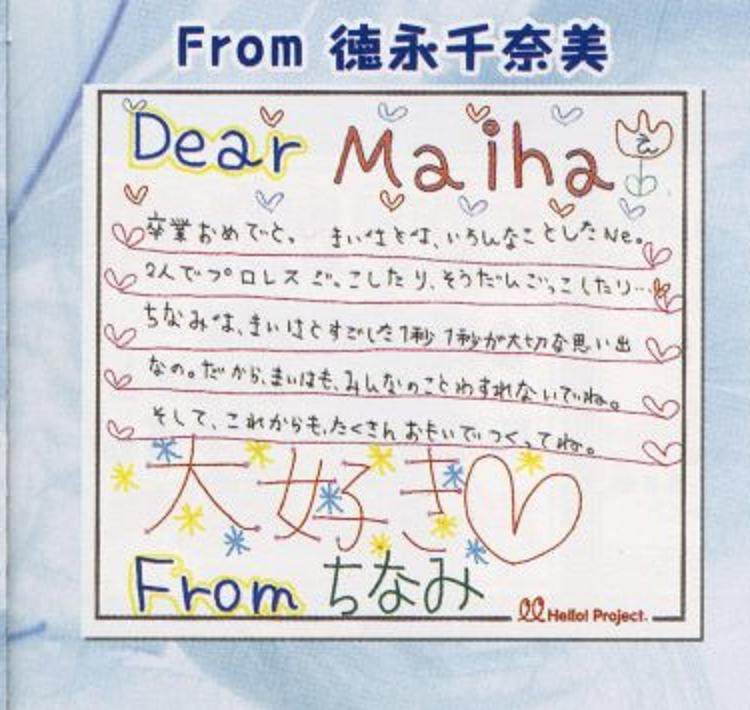 From 徳永千奈美
Dear Maiha
え
卒業おめでと。 まいはとは、いろんなことしたNe。
2人でプロレスごっこしたり、そうだんごっこしたり…
ちなみは、まいはとすごした1秒1秒が大切な思い出
なの。だから、まいはも、みんなのことわすれないでいね。
そして、これからも、たくさんおもいでいつくってね。
大好き♡
From ちなみ
Hello! Project.